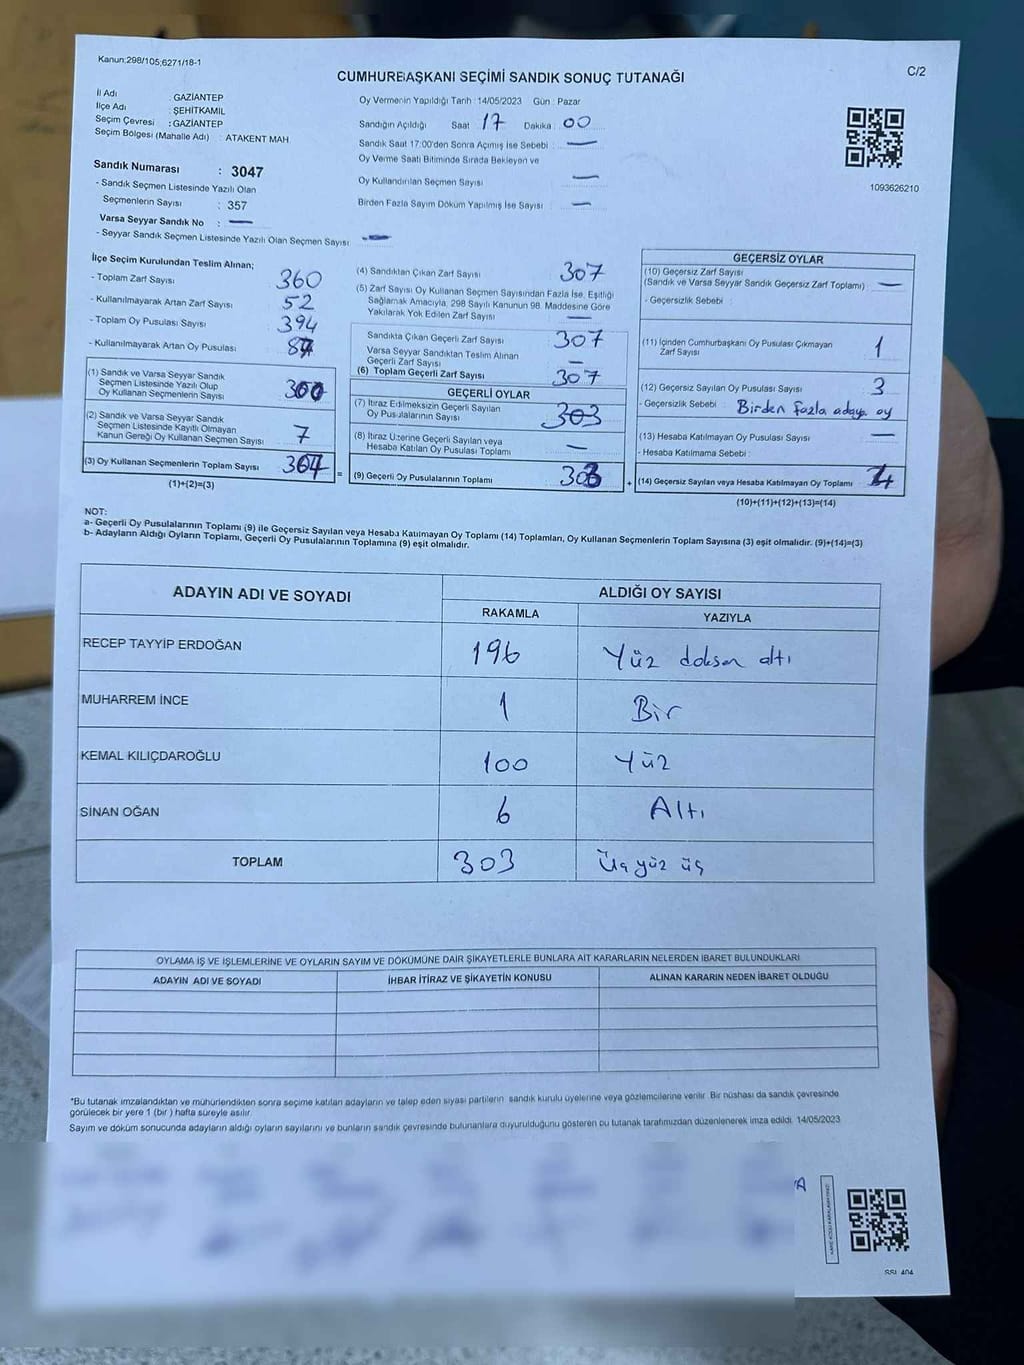 Kanun:298/105;6271/18-1
C/2
CUMHURBAŞKANI SEÇİMİ SANDIK SONUÇ TUTANAĞI
İl Adı : GAZİANTEP
İlçe Adı : ŞEHİTKAMİL
Seçim Çevresi : GAZİANTEP
Seçim Bölgesi (Mahalle Adı) : ATAKENT MAH
Sandık Numarası : 3047
- Sandık Seçmen Listesinde Yazılı Olan
Seçmenlerin Sayısı : 357
Varsa Seyyar Sandık No : —
- Seyyar Sandık Seçmen Listesinde Yazılı Olan Seçmen Sayısı —
Oy Vermenin Yapıldığı Tarih : 14/05/2023 Gün : Pazar
Sandığın Açıldığı Saat : 17 Dakika : 00
Sandık Saat 17:00'den Sonra Açımış İse Sebebi : —
Oy Verme Saati Bitiminde Sırada Bekleyen ve
Oy Kullandırılan Seçmen Sayısı —
Birden Fazla Sayım Döküm Yapılmış İse Sayısı : —
1093626210
İlçe Seçim Kurulundan Teslim Alınan;
- Toplam Zarf Sayısı 360
- Kullanılmayarak Artan Zarf Sayısı 52
- Toplam Oy Pusulası Sayısı 394
- Kullanılmayarak Artan Oy Pusulası
(1) Sandık ve Varsa Seyyar Sandık
Seçmen Listesinde Yazılı Olup
Oy Kullanan Seçmenlerin Sayısı
(2) Sandık ve Varsa Seyyar Sandık
Seçmen Listesinde Kayıtlı Olmayan
Kanun Gereği Oy Kullanan Seçmen Sayısı 7
(3) Oy Kullanan Seçmenlerin Toplam Sayısı
(1)+(2)=(3)
(4) Sandıktan Çıkan Zarf Sayısı 307
(5) Zarf Sayısı Oy Kullanan Seçmen Sayısından Fazla İse, Eşitliği
Sağlamak Amacıyla, 298 Sayılı Kanunun 98. Maddesine Göre
Yakılarak Yok Edilen Zarf Sayısı —
Sandıkta Çıkan Geçerli Zarf Sayısı 307
Varsa Seyyar Sandıktan Teslim Alınan
Geçerli Zarf Sayısı —
(6) Toplam Geçerli Zarf Sayısı 307
GEÇERLİ OYLAR
(7) İtiraz Edilmeksizin Geçerli Sayılan
Oy Pusulalarının Sayısı 303
(8) İtiraz Üzerine Geçerli Sayılan veya
Hesaba Katılan Oy Pusulası Toplamı —
= (9) Geçerli Oy Pusulalarının Toplamı 303
GEÇERSİZ OYLAR
(10) Geçersiz Zarf Sayısı
(Sandık ve Varsa Seyyar Sandık Geçersiz Zarf Toplamı) —
- Geçersizlik Sebebi :
(11) İçinden Cumhurbaşkanı Oy Pusulası Çıkmayan
Zarf Sayısı 1
(12) Geçersiz Sayılan Oy Pusulası Sayısı 3
- Geçersizlik Sebebi : Birden fazla adaya oy
(13) Hesaba Katılmayan Oy Pusulası Sayısı —
- Hesaba Katılmama Sebebi :
+ (14) Geçersiz Sayılan veya Hesaba Katılmayan Oy Toplamı 4
(10)+(11)+(12)+(13)=(14)
NOT:
a- Geçerli Oy Pusulalarının Toplamı (9) ile Geçersiz Sayılan veya Hesaba Katılmayan Oy Toplamı (14) Toplamları, Oy Kullanan Seçmenlerin Toplam Sayısına (3) eşit olmalıdır. (9)+(14)=(3)
b- Adayların Aldığı Oyların Toplamı, Geçerli Oy Pusulalarının Toplamına (9) eşit olmalıdır.
ADAYIN ADI VE SOYADI ALDIĞI OY SAYISI
RAKAMLA YAZIYLA
RECEP TAYYİP ERDOĞAN 196 Yüz doksan altı
MUHARREM İNCE 1 Bir
KEMAL KILIÇDAROĞLU 100 Yüz
SİNAN OĞAN 6 Altı
TOPLAM 303 Üç yüz üç
OYLAMA İŞ VE İŞLEMLERİNE VE OYLARIN SAYIM VE DÖKÜMÜNE DAİR ŞİKAYETLERLE BUNLARA AİT KARARLARIN NELERDEN İBARET BULUNDUKLARI
ADAYIN ADI VE SOYADI İHBAR İTİRAZ VE ŞİKAYETİN KONUSU ALINAN KARARIN NEDEN İBARET OLDUĞU
*Bu tutanak imzalandıktan ve mühürlendikten sonra seçime katılan adayların ve talep eden siyasi partilerin sandık kurulu üyelerine veya gözlemcilerine verilir. Bir nüshası da sandık çevresinde
görülecek bir yere 1 (bir ) hafta süreyle asılır.
Sayım ve döküm sonucunda adayların aldığı oyların sayılarını ve bunların sandık çevresinde bulunanlara duyurulduğunu gösteren bu tutanak tarafımızdan düzenlenerek imza edildi. 14/05/2023